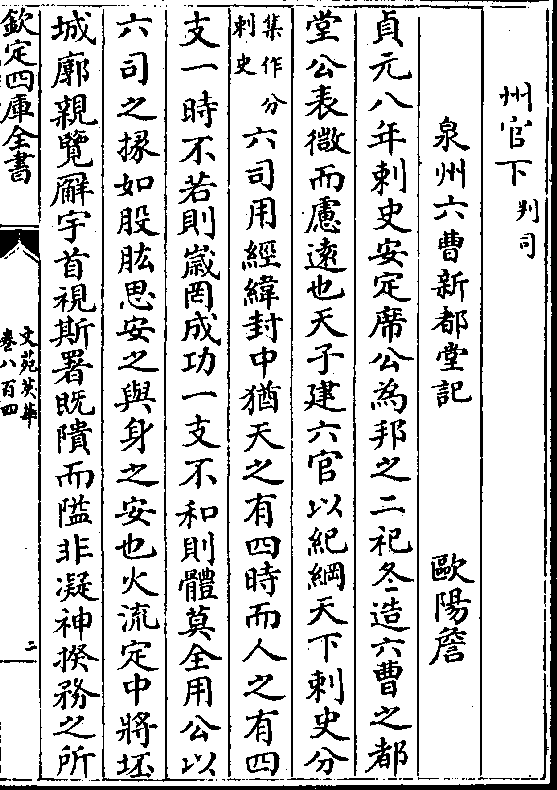 州官下 判司
泉州六曹新都堂記 歐陽詹
貞元八年刺史安定席公為邦之二祀冬造六曹之都
堂公表微而慮遠也天子建六官以紀綱天下刺史分
集作分刺史 六司用經緯封中猶天之有四時而人之有四
支一時不若則嵗罔成功一支不和則體莫全用公以
六司之掾如股肱思安之與身之安也火流定中將坯
城廓親覽廨宇首視斯署既隤而隘非凝神揆務之所
欽定四庫全書
文苑英華
卷八百四
二